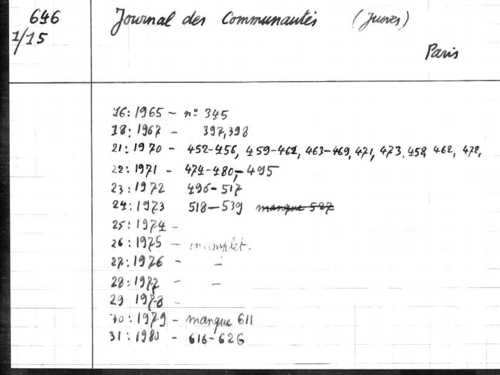 646
1/15
Journal des Communautés (Juives)
Paris
16: 1965 - n° 345
18: 1967 - 397, 398
21: 1970 - 452-456, 459-461, 463-469, 471, 473, 458, 462, 472,
22: 1971 - 474-480, - 495
23: 1972 496-517
24: 1973 518-539 manque 527
25: 1974 -
26: 1975 - incomplet.
27: 1976 - -
28: 1977 - -
29 1978 -
30: 1979 - manque 611
31: 1980 - 616-626